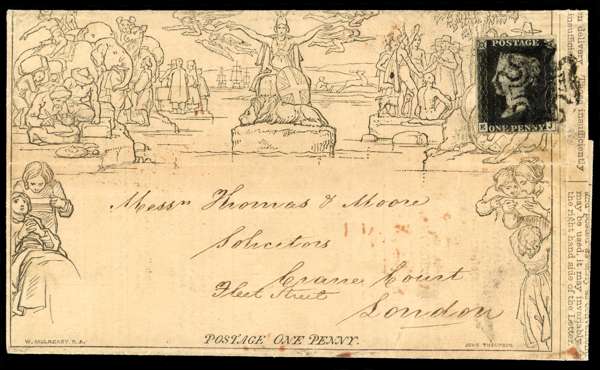 POSTAGE
ONE PENNY
Messrs Thomas & Moore
Solicitors
Crane Court
Fleet Street
London
W. MULREADY. R.A.
POSTAGE ONE PENNY.
JOHN THOMPSON
in delivery
insufficient
insufficiently
may be used, it may invariably
the right hand side of the Letter.